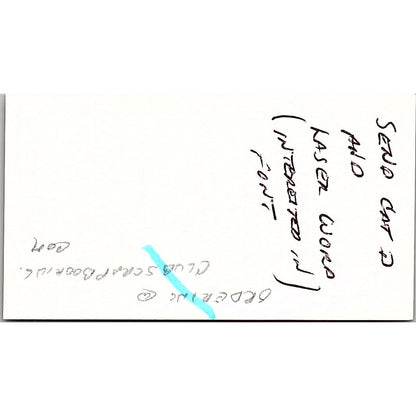 SEND CAT D
AND
LASER WORD
(INTERESTED IN)
FONT
ORDERING @
CLUBSCRAPBOOKING.
COM